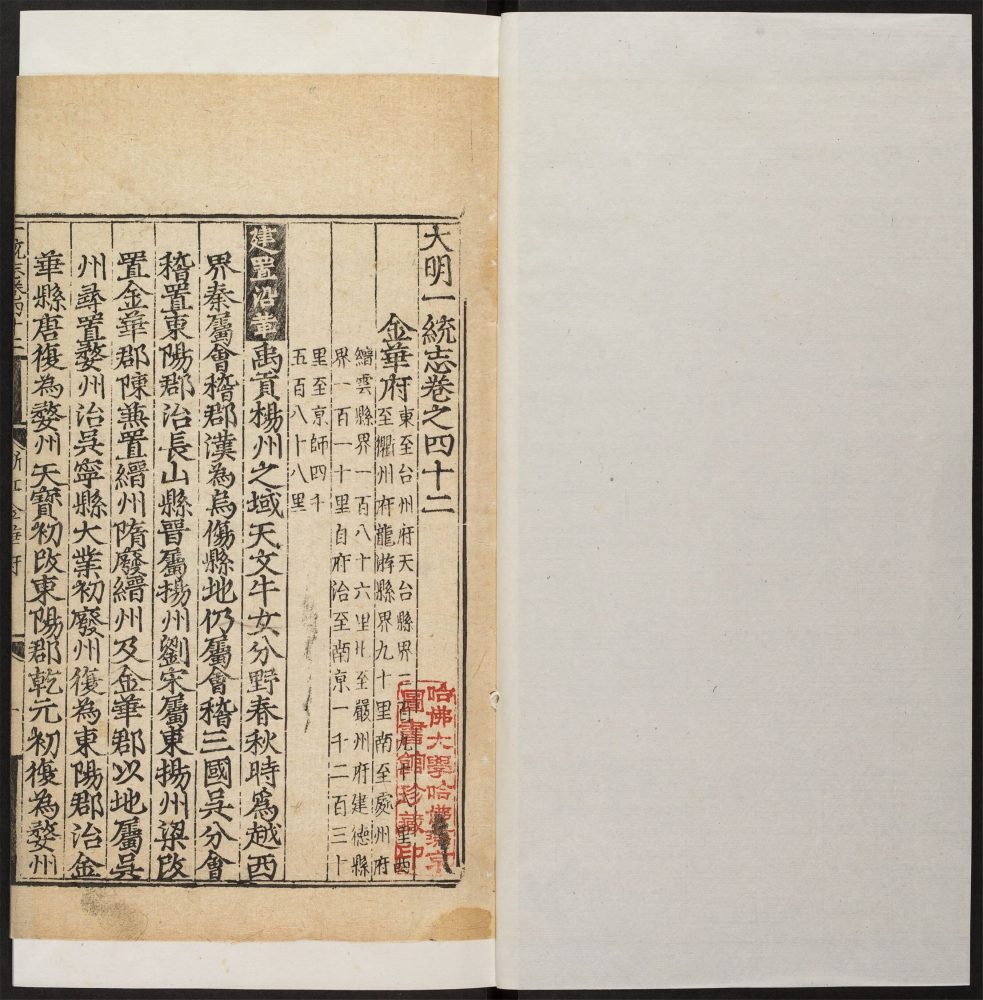 大明一統志卷之四十二
金華府
東至台州府天台縣界一百九十八里西
至衢州府龍游縣界九十里南至處州府
縉雲縣界一百八十六里北至嚴州府建德縣
界一百一十里自府治至南京一千二百三十
里至京師四千
五百八十八里
建置沿革 禹貢楊州之域天文牛女分野春秋時爲越西
界秦屬會稽郡漢為烏傷縣地仍屬會稽三國吳分會
稽置東陽郡治長山縣晋屬揚州劉宋屬東揚州梁改
置金華郡陳兼置縉州隋廢縉州及金華郡以地屬吳
州尋置婺州治吳寧縣大業初廢州復為東陽郡治金
華縣唐復為婺州天寶初改東陽郡乾元初復為婺州
一統志卷四十二
浙江 金華府
一
哈佛大學哈佛燕京
圖書館珍藏印